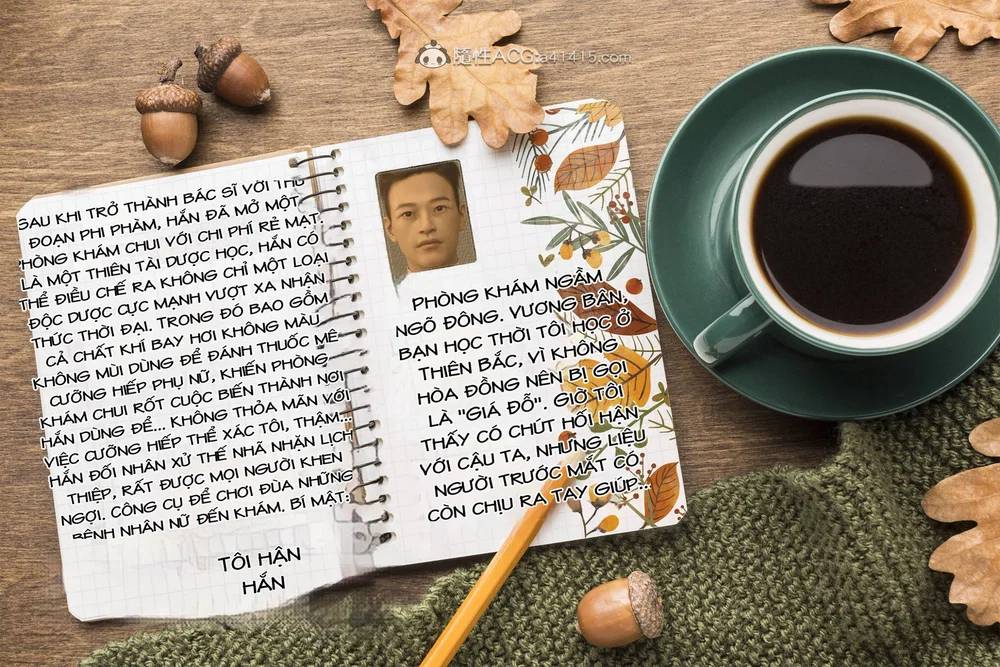 隨性ACG:a41415.com
SAU KHI TRỞ THÀNH BÁC SĨ VỚI THỦ
ĐOẠN PHI PHÀM, HẮN ĐÃ MỞ MỘT
PHÒNG KHÁM CHUI VỚI CHI PHÍ RẺ MẠT.
LÀ MỘT THIÊN TÀI DƯỢC HỌC, HẮN CÓ
THỂ ĐIỀU CHẾ RA KHÔNG CHỈ MỘT LOẠI
ĐỘC DƯỢC CỰC MẠNH VƯỢT XA NHẬN
THỨC THỜI ĐẠI. TRONG ĐÓ BAO GỒM
CẢ CHẤT KHÍ BAY HƠI KHÔNG MÀU,
KHÔNG MÙI DÙNG ĐỂ ĐÁNH THUỐC MÊ
CƯỠNG HIẾP PHỤ NỮ, KHIẾN PHÒNG
KHÁM CHUI RỐT CUỘC BIẾN THÀNH NƠI
HẮN DÙNG ĐỂ... KHÔNG THỎA MÃN VỚI
VIỆC CƯỠNG HIẾP THỂ XÁC TÔI, THẬM...
HẮN ĐỐI NHÂN XỬ THẾ NHÃ NHẶN LỊCH
THIỆP, RẤT ĐƯỢC MỌI NGƯỜI KHEN
NGỢI. CÔNG CỤ ĐỂ CHƠI ĐÙA NHỮNG
BỆNH NHÂN NỮ ĐẾN KHÁM. BÍ MẬT:
TÔI HẬN
HẮN
PHÒNG KHÁM NGẦM
NGÕ ĐÔNG. VƯƠNG BÂN,
BẠN HỌC THỜI TÔI HỌC Ở
THIÊN BẮC, VÌ KHÔNG
HÒA ĐỒNG NÊN BỊ GỌI
LÀ "GIÁ ĐỖ". GIỜ TÔI
THẤY CÓ CHÚT HỐI HẬN
VỚI CẬU TA, NHƯNG LIỆU
NGƯỜI TRƯỚC MẮT CÓ
CÒN CHỊU RA TAY GIÚP...